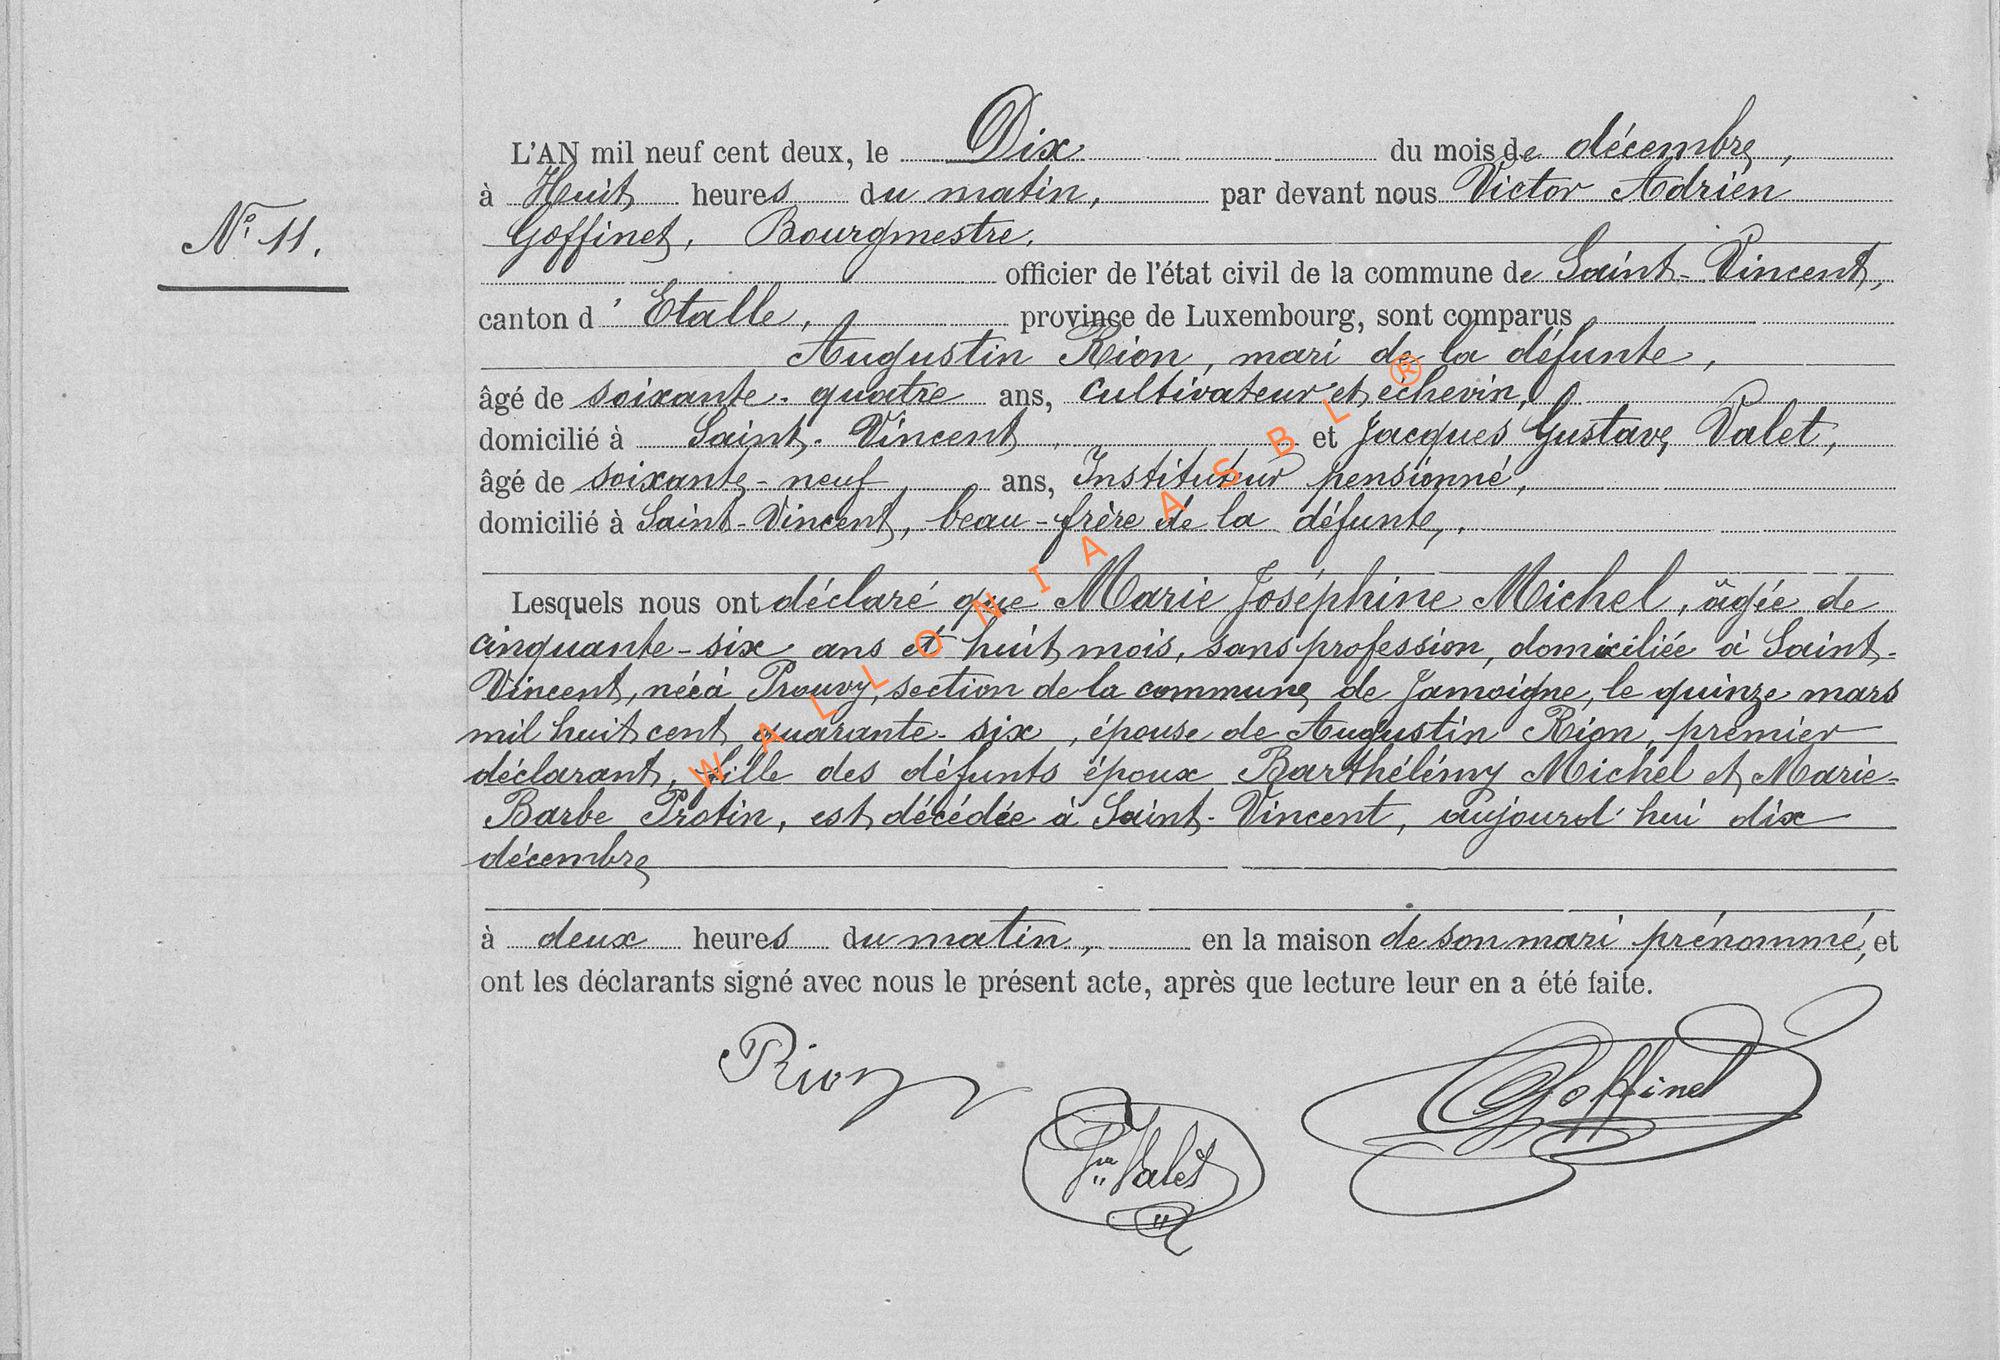 L'AN mil neuf cent deux, le Dix du mois de décembre,
à Huit heures du matin, par devant nous Victor Adrien
N° 11.
Goffinet, Bourgmestre,
officier de l'état civil de la commune de Saint-Vincent,
canton d'Etalle, province de Luxembourg, sont comparus
Augustin Rion, mari de la défunte,
âgé de soixante-quatre ans, cultivateur et échevin,
domicilié à Saint-Vincent, et Jacques Gustave Valet,
âgé de soixante-neuf ans, Instituteur pensionné,
domicilié à Saint-Vincent, beau-frère de la défunte,
Lesquels nous ont déclaré que Marie Joséphine Michel, âgée de
cinquante-six ans et huit mois, sans profession, domiciliée à Saint-
Vincent, née à Prouvy, section de la commune de Jamoigne, le quinze mars
mil huit cent quarante-six, épouse de Augustin Rion, premier
déclarant, fille des défunts époux Barthélémy Michel et Marie-
Barbe Protin, est décédée à Saint-Vincent, aujourd'hui dix
décembre
à deux heures du matin, en la maison de son mari prénommé, et
ont les déclarants signé avec nous le présent acte, après que lecture leur en a été faite.
Rion
Valet
Goffinet
WALLONIA ASBL ®